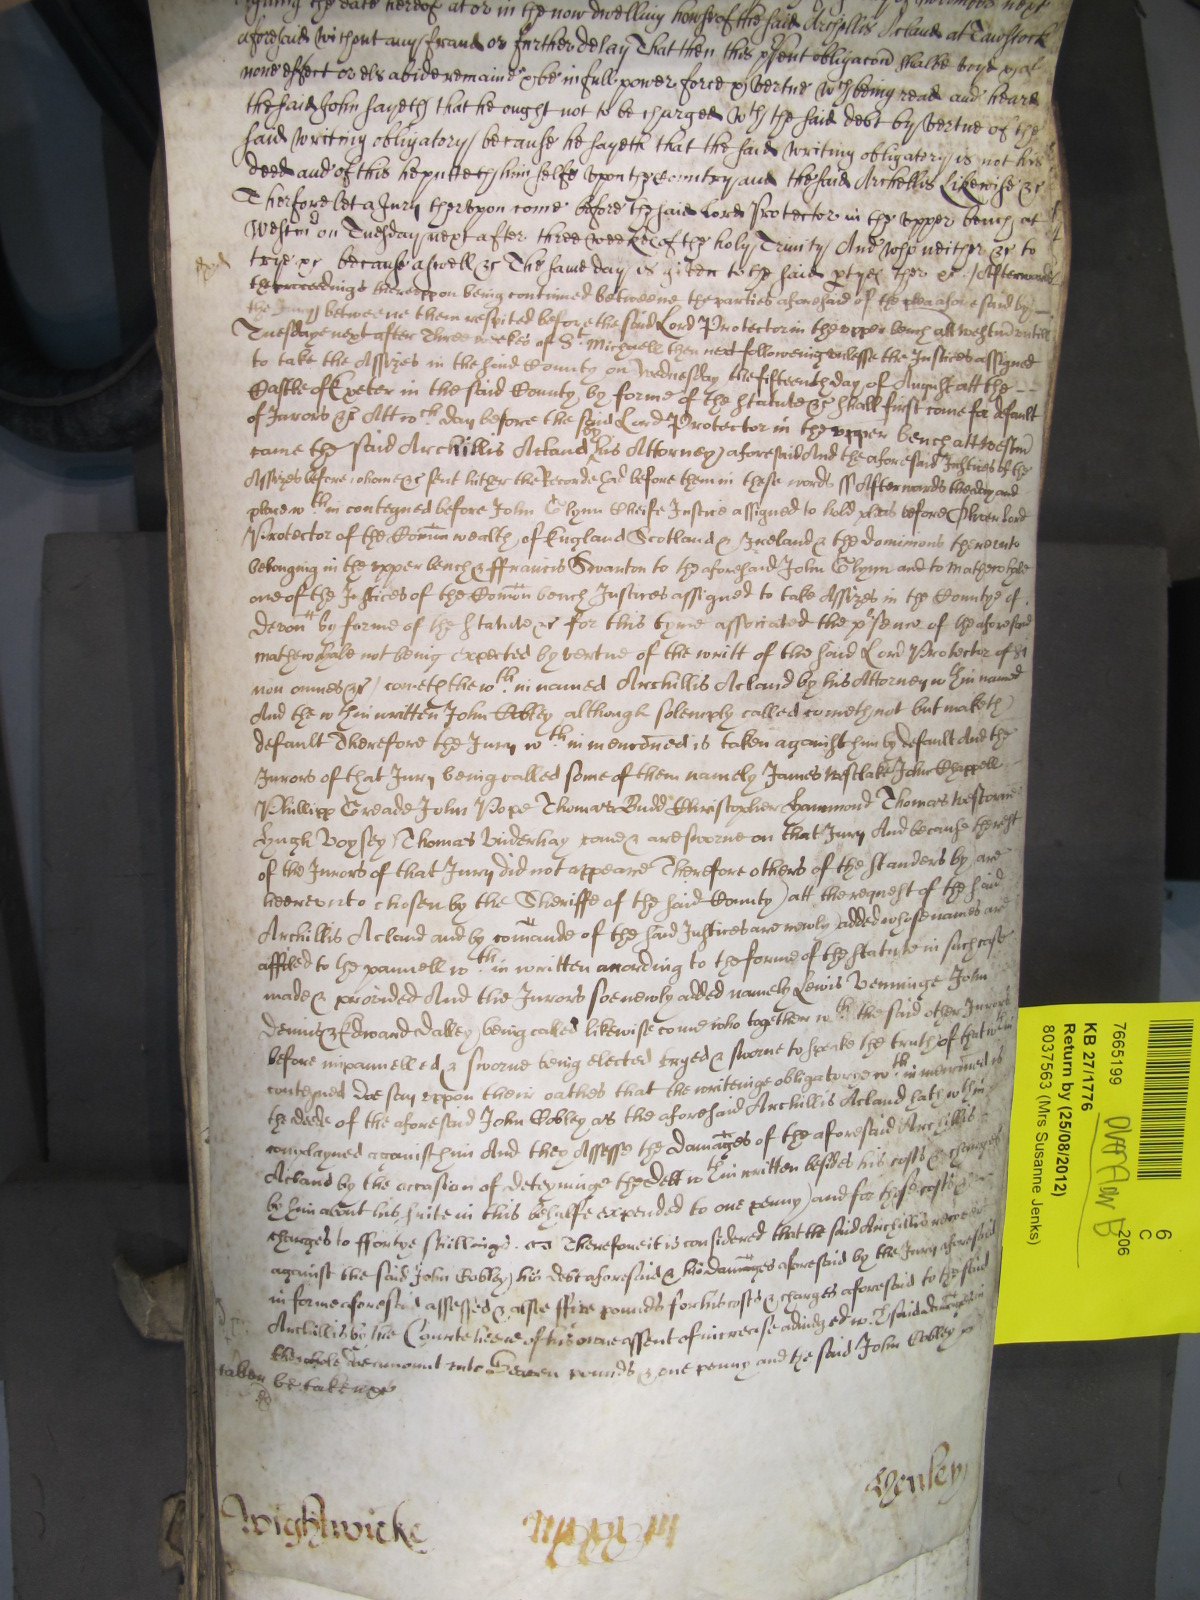 the date hereof at or in the now dwelling howse of the said Archillis Acland at Tawstock
aforesaid without any fraud or further delay That then this p'sent obligacon shalbe voyd
none effect or els abide remaine & be in full power force & vertue wch being read and heard
the said John sayeth that he ought not to be charged wth the said debt by vertue of the
said writing obligatory because he sayeth that the said writing obligatory is not his
deed and of this he putteth him selfe upon the Country and the said Archillis likewise &c
Therefore let a Jury thereupon come before the said Lord Protector in the upper bench at
Westmr on Tuesday next after three weekes of the holy Trinity And who neither &c to
trye &c because aswell &c The same day is given to the said ptyes ther &c Afterwards
the proceedings thereupon being continued betweene the parties aforesaid of the plea aforesaid by
the Jury betweene them respited before the said Lord Protector in the upper bench att Westmr untill
Tuesdaye next after Three weekes of St Michaell then next followeing unlesse the Justices assigned
to take the Assizes in the said County on Wednesday the fifteenth day of August att the
Castle of Exeter in the said County by forme of the Statute &c shall first come for default
of Jurors &c Att wch day before the said Lord Protector in the upper bench att Westmr
came the said Archillis Acland by his Attorney aforesaid And the aforesaid Justices of the
Assizes before whome &c sent hither the Recorde had before them in these words ss Afterwards the day and
place wthin conteyned before John Glynn Cheife Justice assigned to hold pleas before Oliver Lord
Protector of the Comon wealth of England Scotland & Ireland & the dominions thereunto
belonging in the upper bench & ffrancis Swanton to the aforesaid John Glynn and to Mathew Hale
one of the Justices of the Comon bench Justices assigned to take Assizes in the Countye of
Devon by forme of the Statute &c for this tyme associated the p'sence of the aforesaid
Mathew Hale not being expected by vertue of the writt of the said Lord Protector of Si
non omnes &c cometh the wthin named Archillis Acland by his Attorney wthin named
And the wthin written John Cobley although solemply called cometh not but maketh
default Therefore the Jury wthin menconed is taken against him by default And the
Jurors of that Jury being called some of them namely James Westlake John Chappell
Phillipp Greade John Pope Thomas Budd Christopher Hammond Thomas Westorne
Hugh Voysey Thomas Underhay come & are sworne on that Jury And because the rest
of the Jurors of that Jury did not appeare Therefore others of the standers by are
heereunto chosen by the Sheriffe of the said County att the request of the said
Archillis Acland and by comande of the said Justices are newly added whose names are
affiled to the pannell wthin written according to the forme of the statute in such case
made & provided And the Jurors soe newly added namely Lewis Venninge John
Dennis & Edward Dalley being called likewise come who together wth the said other Jurors
before impannelled & sworne being elected tryed & sworne to speake the truth of that wthin
conteyned doe say uppon their oathes that the writeinge obligatorye wthin menconed is
the deede of the aforesaid John Cobley as the aforesaid Archillis Acland hath wthin
complayned against him And they Assesse the damages of the aforesaid Archillis
Acland by the occasion of deteyninge the debt wthin written besides his costs & charges
by him about his suite in this behalfe expended to one penny and for those costs &
charges to ffortye shillings Therefore it is considered that the said Archillis recover
against the said John Cobley his debt aforesaid & his damages aforesaid by the Jury aforesaid
in forme aforesaid assessed & alsoe ffive pounds for his costs & charges aforesaid to the said
Archillis by the Courte heere of his owne assent of increase adiudged wch said damages in
the whole doe amount unto Seaven pounds & one penny and the said John Cobley
taken be taken &c
Wightwicke
Henley
7665199
KB 27/1776
Return by (25/08/2012)
8037563 (Mrs Susanne Jenks)
6
C
206